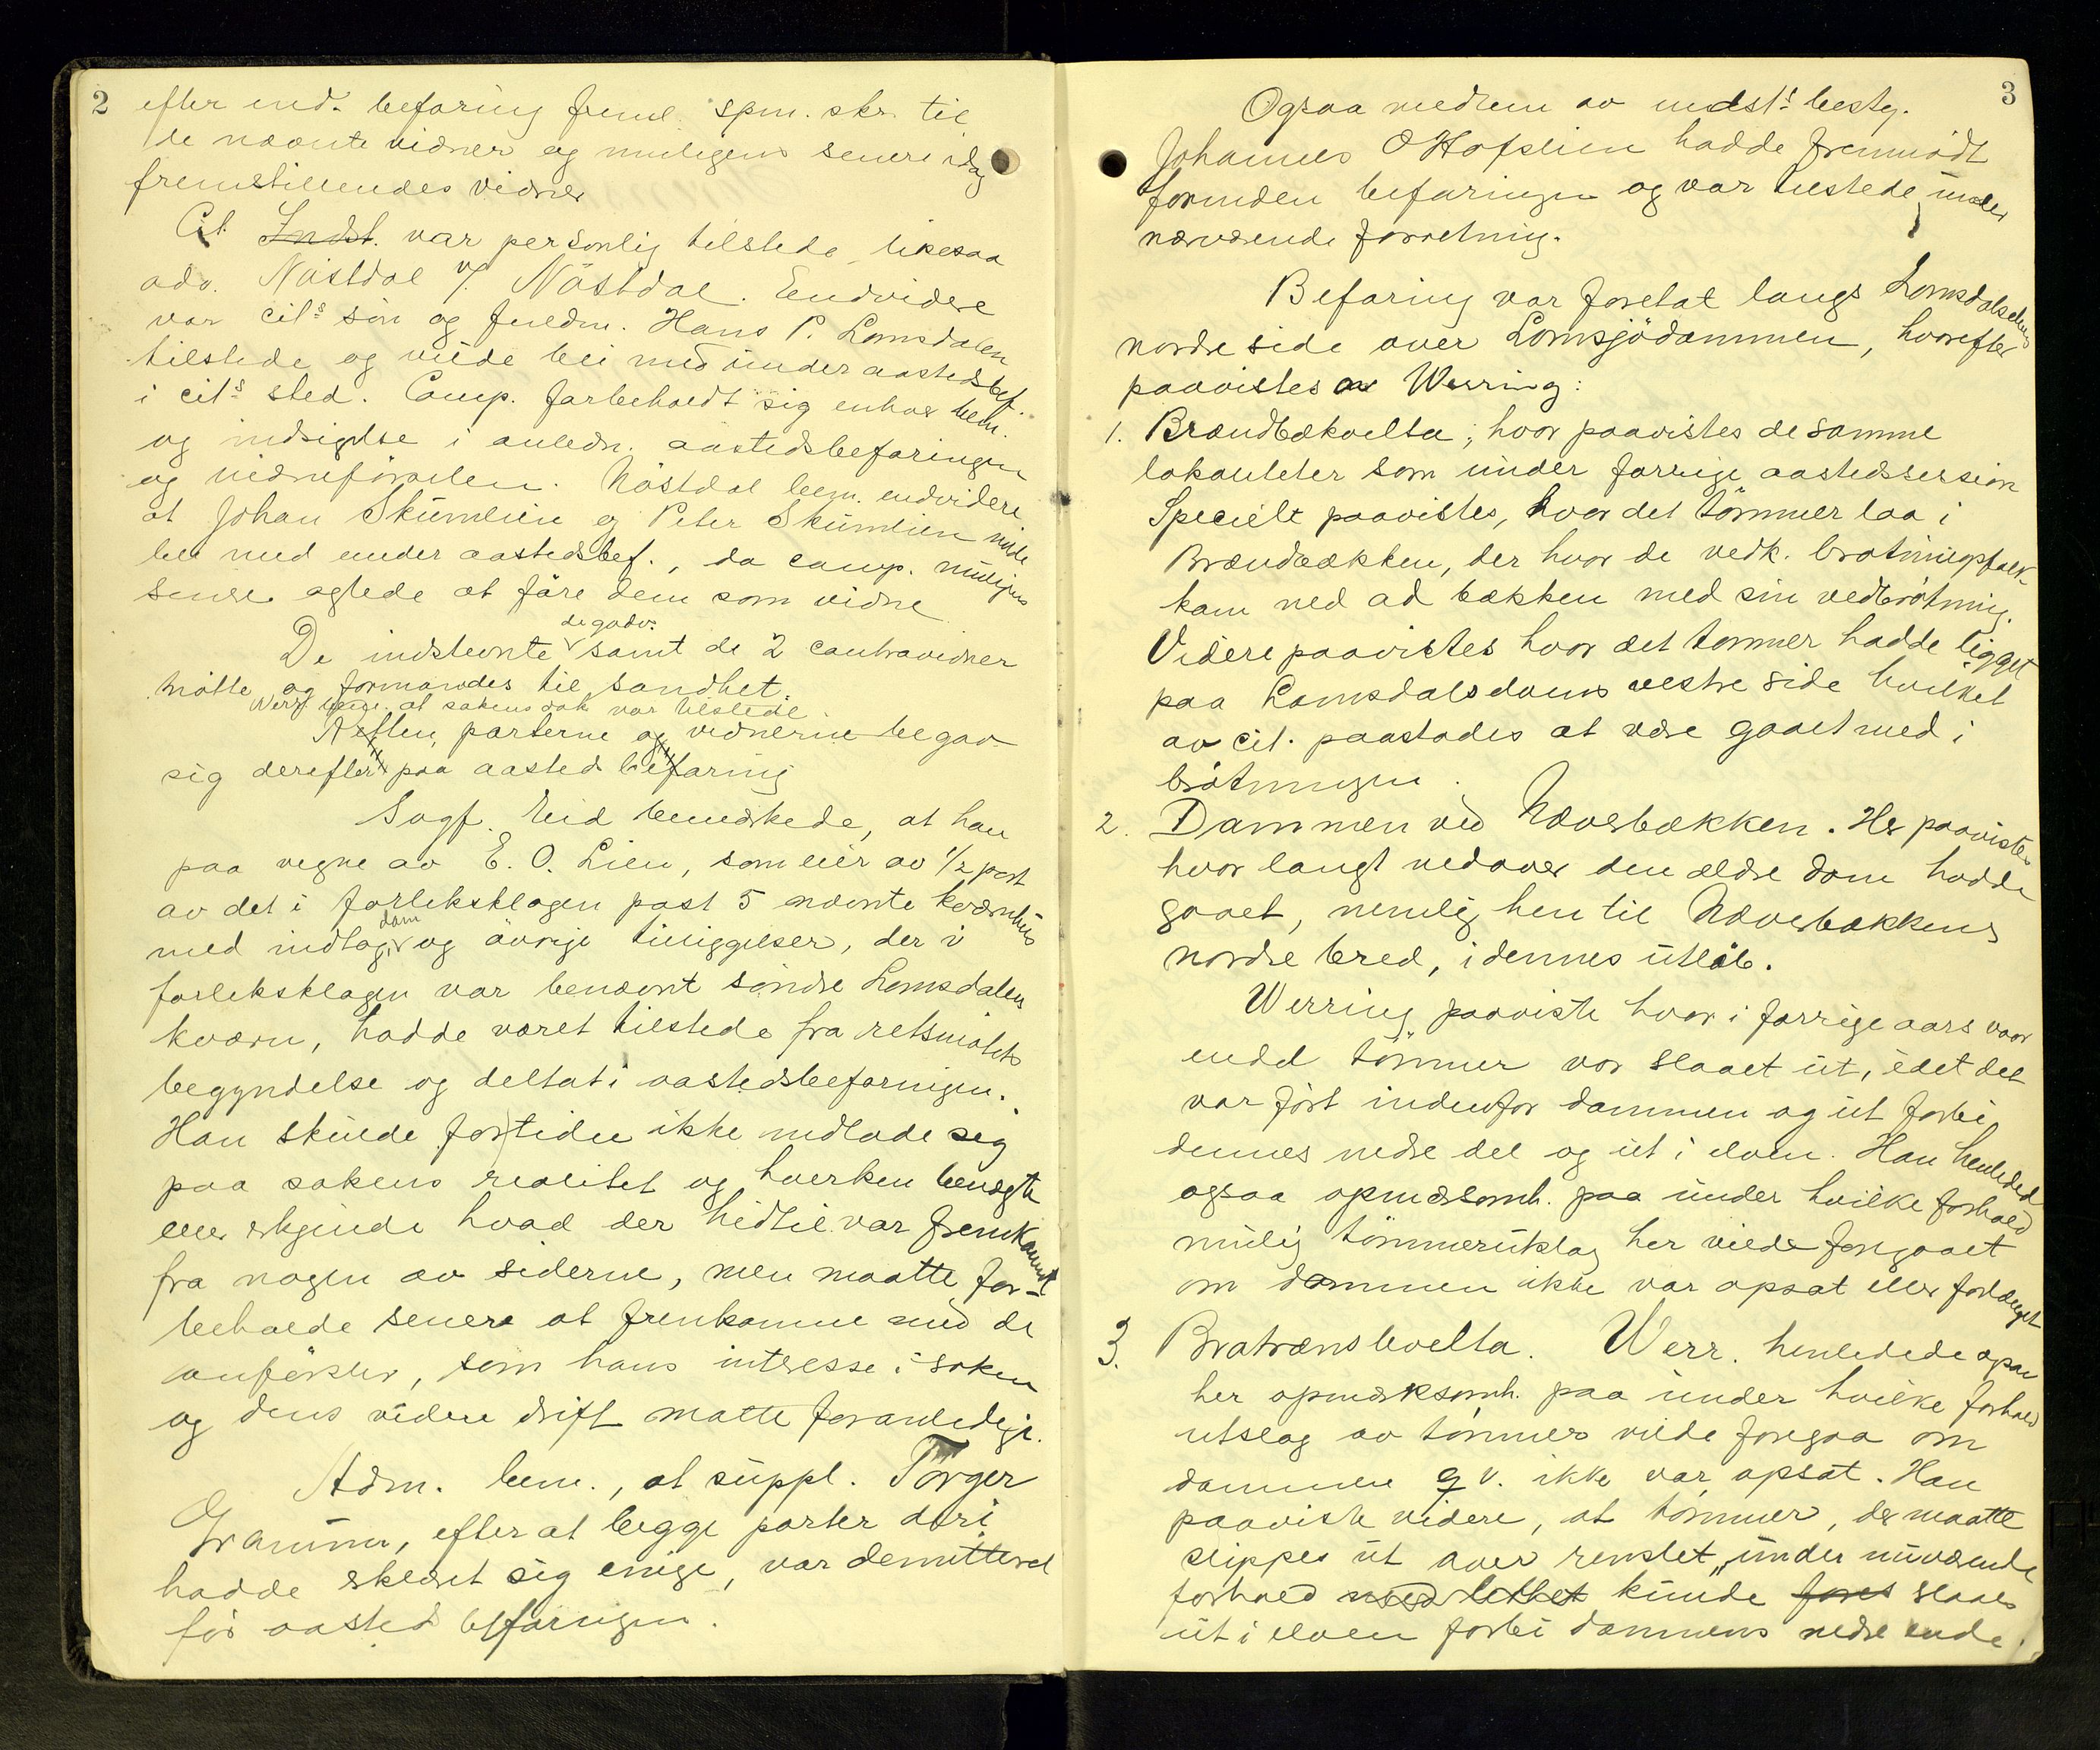 2
efter end. befaring freml. spm. skr. til
de nævnte vidner og muligens senere idag
fremstillendes vidner
Cit. Indst. var personlig tilstede, likesaa
adv. Nöstdal v/ Nöstdal. Endvidere
var cits sön og fuldm. Hans P. Lomsdalen
tilstede og vilde bli med under aastedsbef.
i cits sted. Comp. forbeholdt sig enhver bem.
og indsigelse i anledn. aastedsbefaringen
og vidneförselen. Nöstdal bem. endvidere
at Johan Skumlien og Peter Skumlien vilde
bli med under aastedsbef., da comp. muligens
senere agtede at före dem som vidne
degadv.
De indstevnte samt de 2 contravidner
mötte og formandes til sandhet.
Werr. bem. at sakens dok var tilstede
Retten, parterne og vidnerne begav
sig derefter paa aasted befaring
Sagf. Eid bemerkede, at han
paa vegne av E. O. Lien, som eier av 1/2 part
av det i forliksklagen post 5 nævnte kværnhus
med indtag, dam og övrige tilliggelser, der i
forliksklagen var benævnt söndre Lomsdalens
kværn, hadde været tilstede fra retsmötets
begyndelse og deltat i aastedsbefaringen.
Han skulde for tiden ikke indlade seg
paa sakens realitet og hverken benægte
eller erkjende hvad der hidtil var fremkommet
fra nogen av siderne, men maatte for-
beholde senere at fremkomme med de
anförsler, som hans interesse i saken
og dens videre drift matte foranledige.
Adm. bem., at suppl. Torger
Granum, efter at begge parter deri
hadde erklæret sig enige, var demitteret
för aasted befaringen.
3
Ogsaa medlem av indsts besty.
Johannes O Hofslien hadde fremmödt
forinden befaringen og var tilstede under
nærværende forretning.
Befaring var foretat langs Lomsdalselvens
nordre side over Lomsjödammen, hvorefter
paavistes av Werring:
1. Brændbækvelta; hvor paavistes de samme
lokaliteter som under forrige aastedssession
Specielt paavistes, hvor det tömmer laa i
Brændbækken, der hvor de vedk. brötningsfolk
kom ned ad bækken med sin vedbrötning.
Videre paavistes hvor det tömmer hadde ligget
paa Lomsdalsdams vestre side hvilket
av cit. paastodes at være gaaet med i
brötningen.
2. Dammen ved Næverbækken. Her paavistes
hvor langt nedover den ældre dam hadde
gaaet, nemlig hen til Næverbækkens
nordre bred, i dennes utlöb.
Werring paaviste hvor i forrige aars vaar
endel tömmer var slaaet ut, idet det
var fört indenfor dammen og ut forbi
dennes nedre del og ut i elven. Han henledede
ogsaa opmerksomh. paa under hvilke forhold
mulig tömmerutslag her vilde foregaaet
om dammen ikke var opsat eller forlænget
3. Bratrænslevelta. Werr. henledede
her opmerksomh. paa under hvilke forhold
utslag av tömmer vilde foregaa om
dammen q. v. ikke var opsat. Han
paaviste videre, at tömmer, der maatte
slippes ut over renslet, under nuværende
forhold med lethet kunde föres slaaes
ut i elven forbi dammens nedre ende.